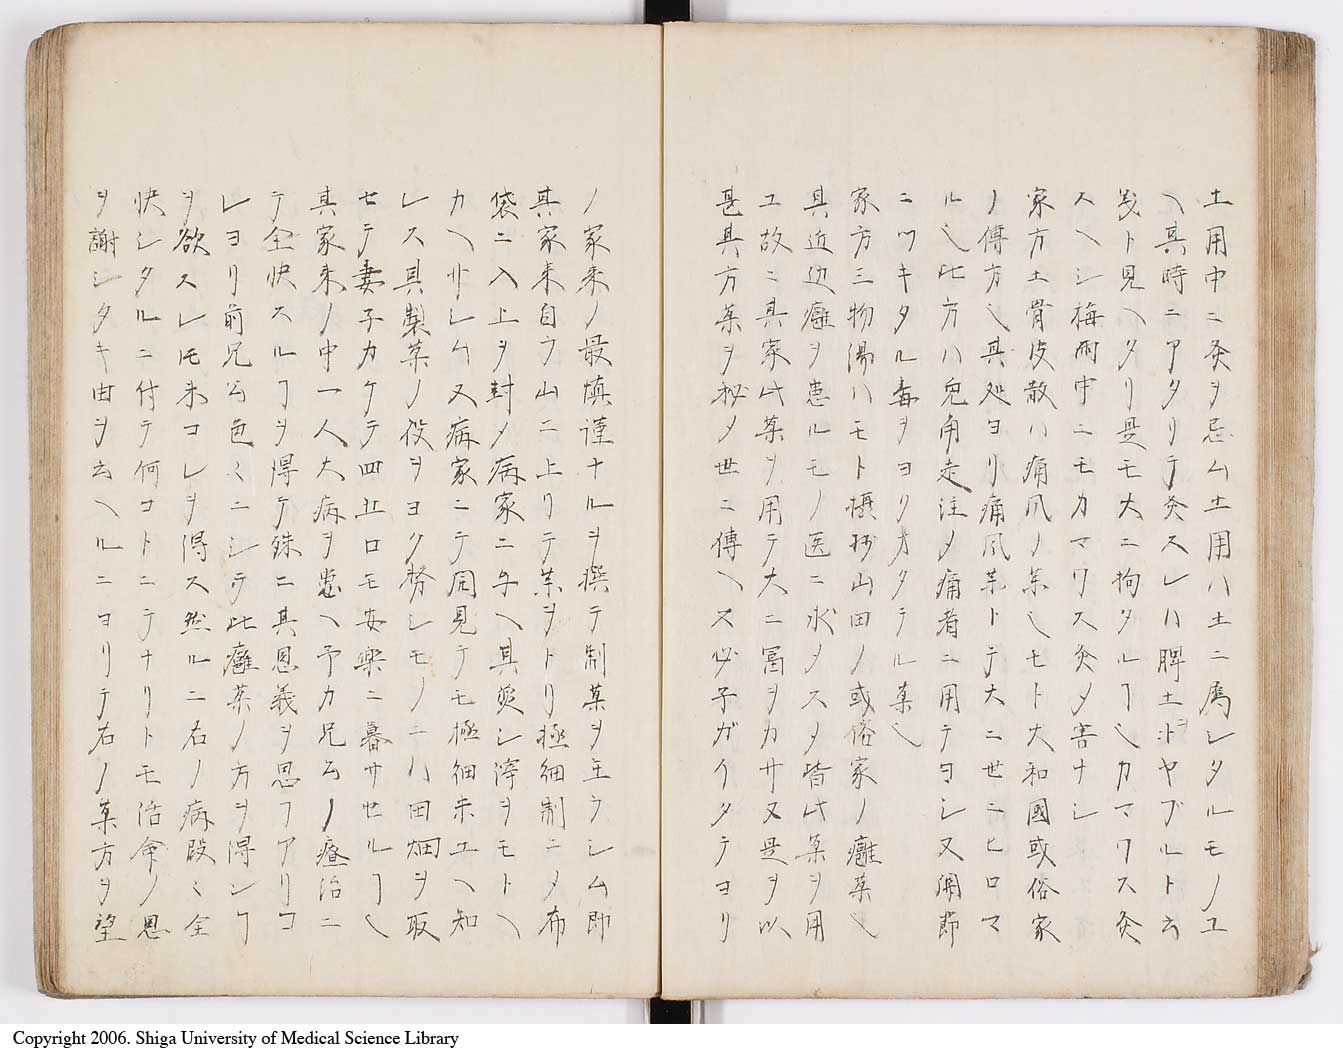 土用中ニ灸ヲ忌ム土用ハ土ニ属シタルモノユ
ヘ其時ニアタリテ灸スレハ脾土ヲヤブルト云
義ト見ヘタリ是モ大ニ拘タルヿ也カマワス灸
スヘシ梅雨中ニモカマワス灸メ害ナシ
家方土骨皮散ハ痛風ノ薬也モト大和國或俗家
ノ傳方也其処ヨリ痛風薬トテ大ニ世ニヒロマ
ル也此方ハ兎角走注メ痛者ニ用テヨシ又関節
ニツキタル毒ヲヨクカタテル薬也
家方三物湯ハモト摂州山田ノ或俗家ノ癰薬也
其近辺癰ヲ患ルモノ医ニ求メスメ皆此薬ヲ用
ユ故ニ其家此薬ヲ用テ大ニ冨ヲカサ又是ヲ以
甚其方薬ヲ秘メ世ニ傳ヘス必子ガイタテヨリ
ノ家来ノ最慎謹ナルヲ撰テ制薬ヲ主ラシム即
其家来自ラ山ニ上リテ薬ヲトリ極細制ニメ布
袋ニ入上ヲ封メ病家ニ与ヘ其煎シ滓ヲモトヘ
カヘサシム又病家ニテ同見テモ極細末ユヘ知
レス其製薬ノ役ヲヨク努シモノニハ田畑ヲ取
セテ妻子カケテ四五口モ安楽ニ暮サセルヿ也
其家来ノ中一人大病ヲ患ヘ予カ兄公ノ療治ニ
テ全快スルヿヲ得テ殊ニ其恩義ヲ思フアリコ
レヨリ前兄公色々ニシテ此癰薬ノ方ヲ得ンヿ
ヲ欲スレ𪜈未コレヲ得ス然ルニ右ノ病段々全
快シタルニ付テ何コトニテナリトモ活命ノ恩
ヲ謝シタキ由ヲ云ヘルニヨリテ右ノ薬方ヲ望
Copyright 2006. Shiga University of Medical Science Library